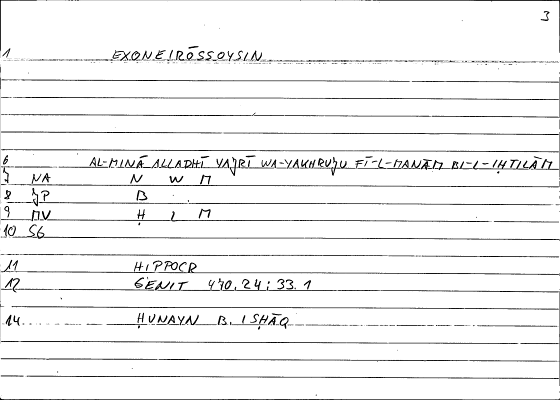 3
1 EXONEIRŌSSOYSIN
6 AL-MINĀ ALLADHĪ YAJRĪ WA-YAKHRUJU FĪ-L-MANĀM BI-L-IḤTILĀM
7 NA N W M
8 JP B
9 MV Ḥ L M
10 SG
11 HIPPOCR
12 GENIT 470.24; 33.1
14 ḤUNAYN B. ISḤĀQ